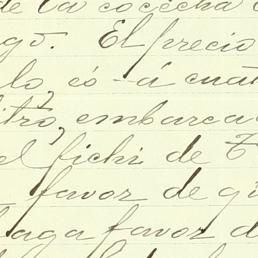 de la cosecha
go. El precio
lo, és á cuat
litro, embarca
el fichi de T
favor de q
haga favor d